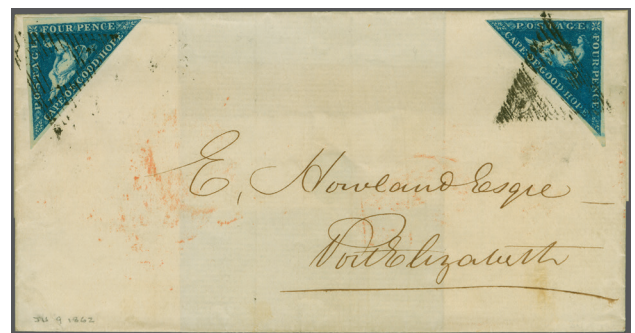 POSTAGE
FOUR PENCE
CAPE OF GOOD HOPE
POSTAGE
FOUR PENCE
CAPE OF GOOD HOPE
E, Howland Esqre
Port Elizabeth
9 1862